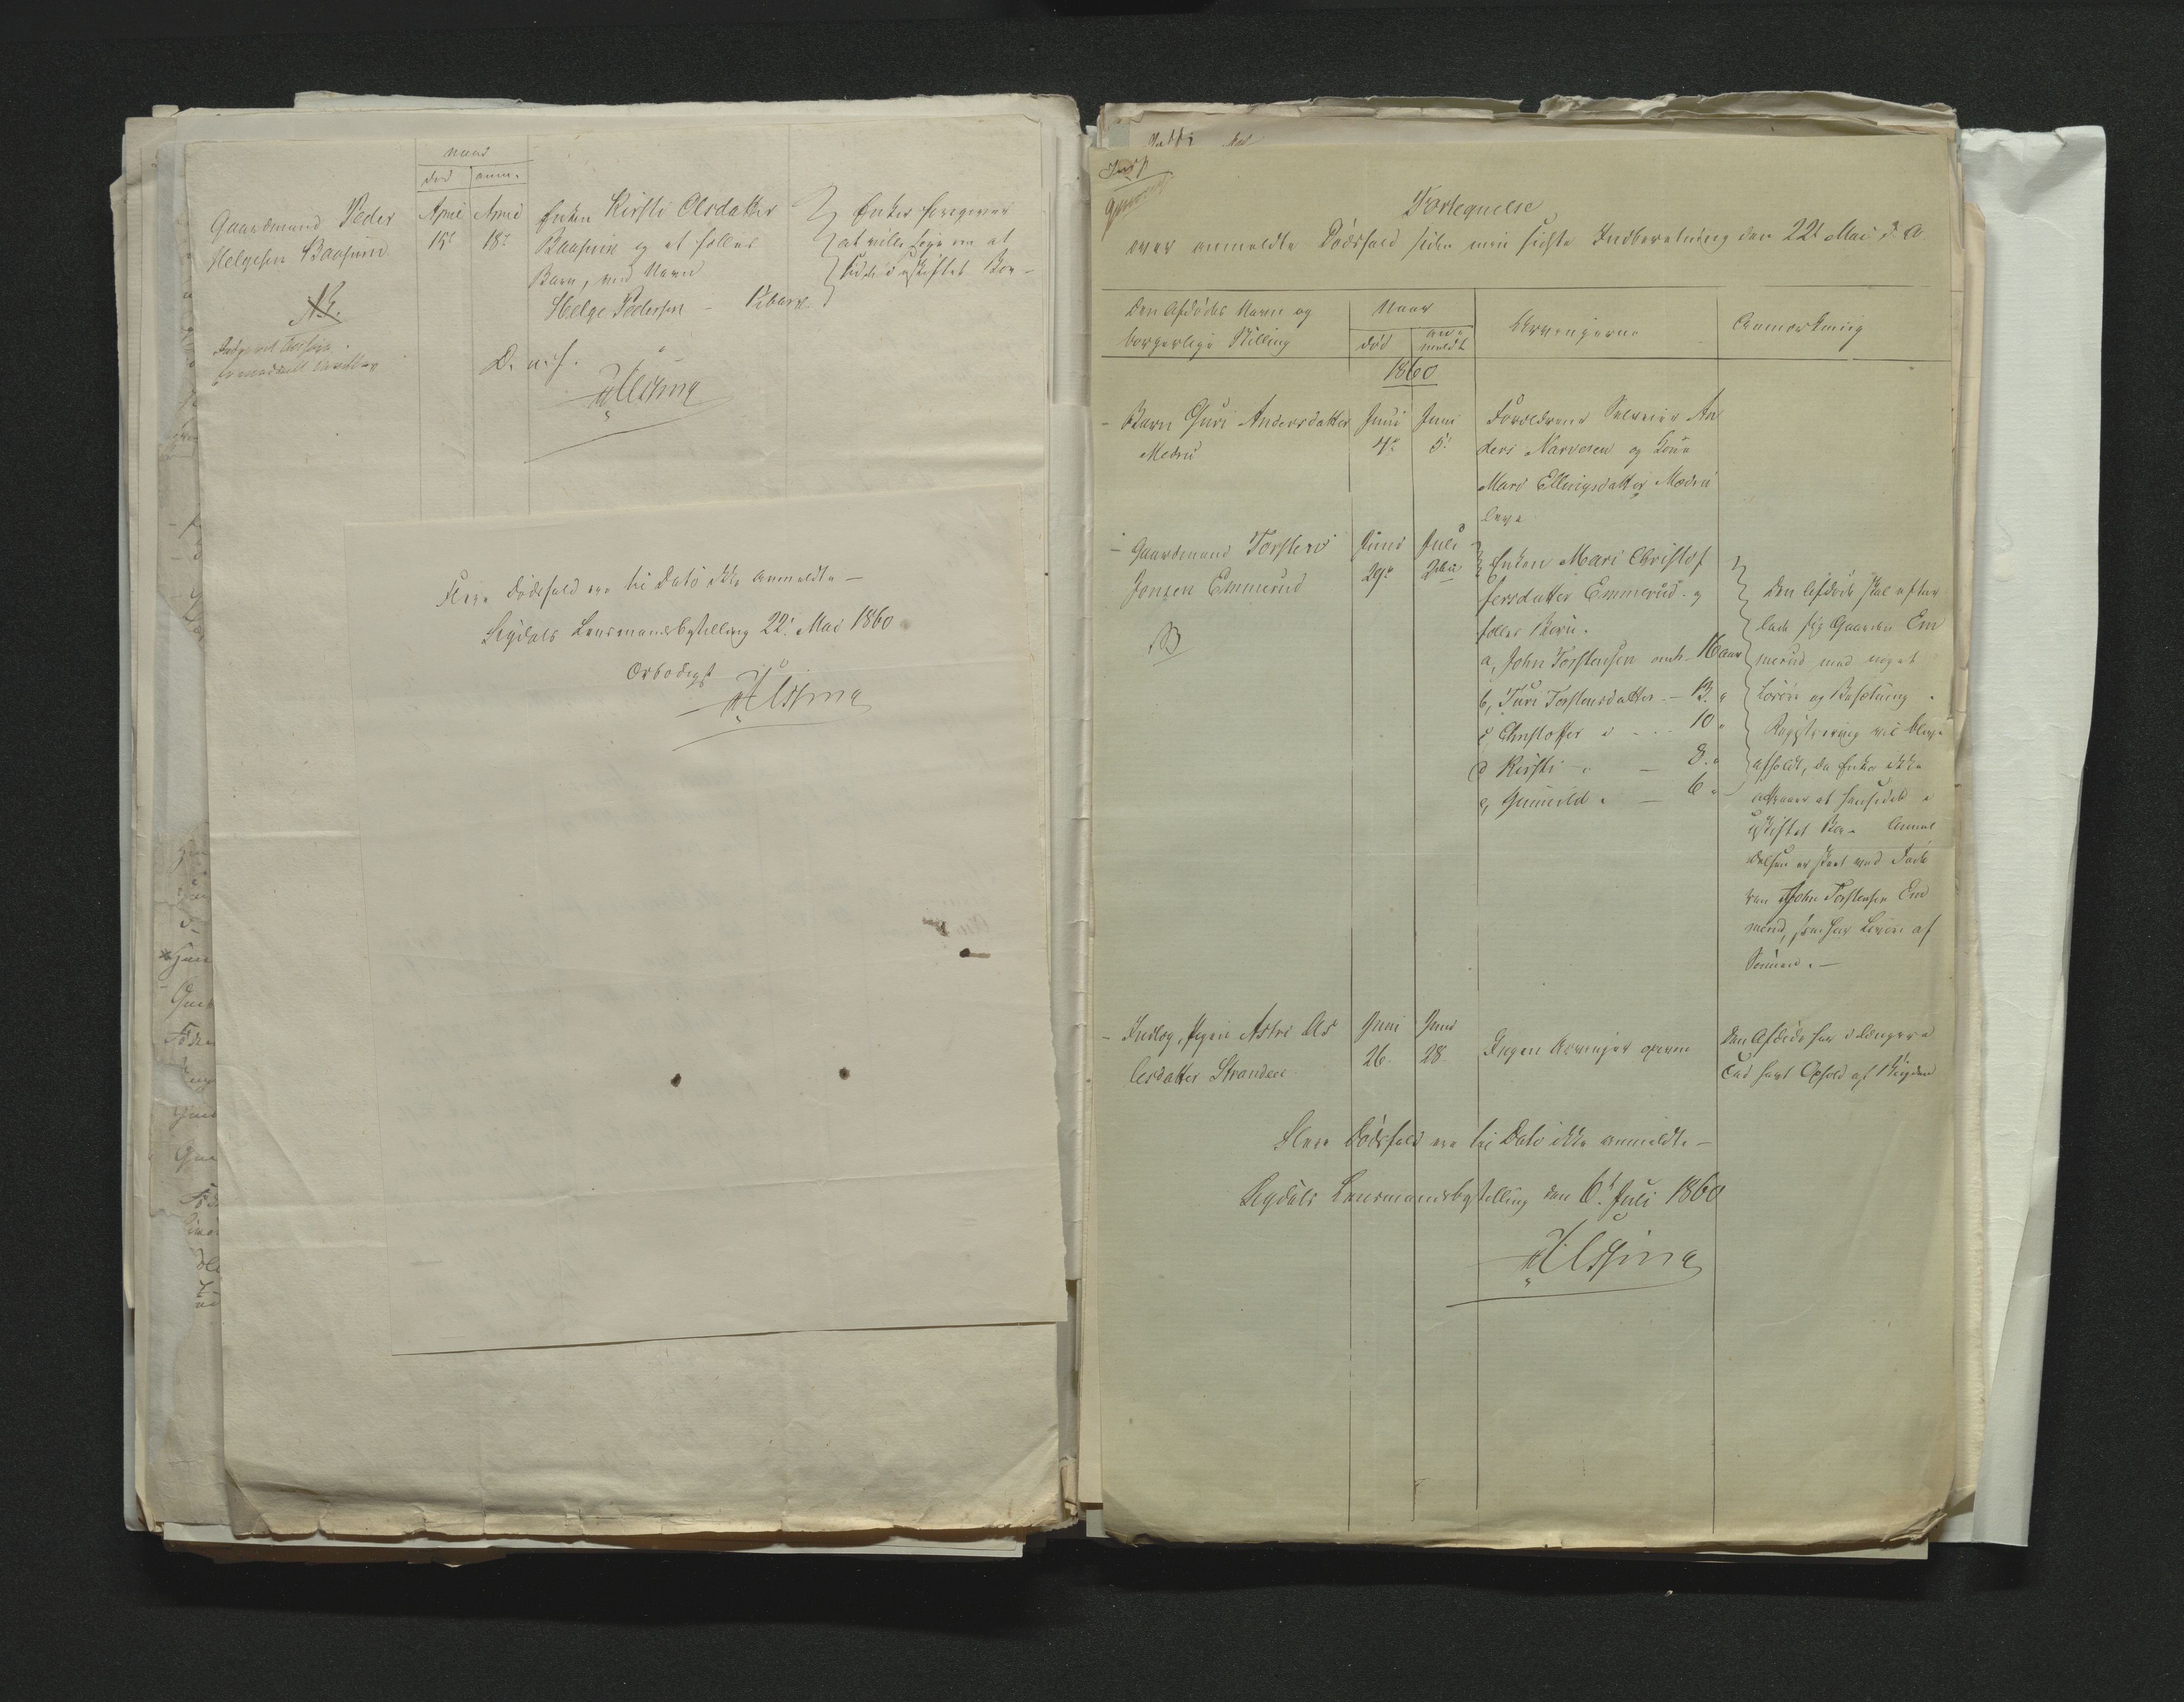 Naar
død anm.
Gaardmand Peder
Helgesen Baasum
April April
15de 18de
Enken Kirsti Olsdatter
Baasum og et fælles
Barn, ved Navn
Helge Pedersen – 1½ aar
Enken foregiver
at ville søge om at
sidde i uskiftet Boe –
D. u. s.
Flere Dødsfald ere til Dato ikke anmeldte –
Sigdals Lensmandsbestilling 22de Mai 1860
Ærbødigst
Fortegnelse
over anmeldte Dødsfald siden min sidste Indberetning den 22de Mai d. A
Den Afdødes Navn og
borgerlige Stilling
Naar
død
an-
meldt
Arvingerne
Anmærkning
1860
– Barn Guri Andersdatter
Medru
Juni Juni
4de 5te
Forældrene Selveier An
ders Narvesen og Kone
Mari Ellingsdatter Medru
leve
– Gaardmand Torsten
Jonsen Emmerud
Juni Juli
29de 2den
Enken Mari Christof
fersdatter Emmerud og
fælles Børn.
a, John Torstensen omtr. 16 aar
b, Turi Torstensdatter – 13 "
c, Christoffer " – 10 "
d Kirsti " – 8 "
e, Gunnild " – 6 "
Den Afdøde skal efter
lade sig Gaarden Em
merud med noget
Løsøre og Besætning.
Registrering vil blive
afholdt, da Enken ikke
at hensidde i
uskiftet Boe. Anmel
delsen er skeet ved Fade
ren John Torstensen Em
merud, som har Livøre af
Sønnen. –
– Indlæg, Pigen Astri Ols
Olsdatter Stranden
Juni Juni
26 28
Ingen Arvinger opgivne
Den Afdøde har i længere
Tid havt Ophold af Bygden
Flere Dødsfald ere til Dato ikke anmeldte –
Sigdals Lensmandsbestilling den 6te Juli 1860